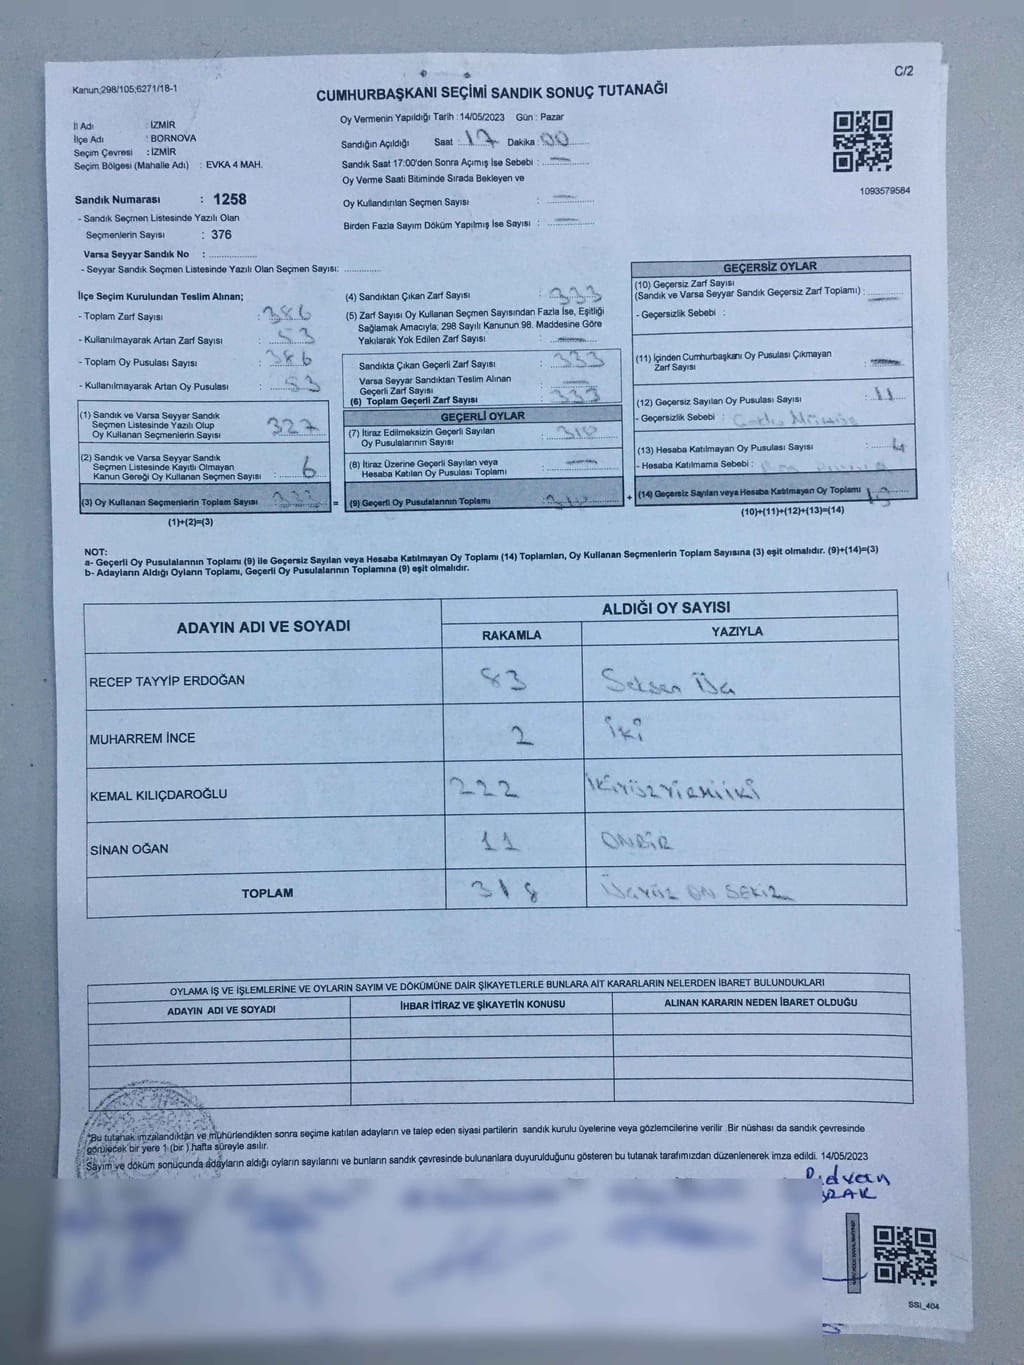 C/2
Kanun;298/105;6271/18-1
CUMHURBAŞKANI SEÇİMİ SANDIK SONUÇ TUTANAĞI
İl Adı : İZMİR
İlçe Adı : BORNOVA
Seçim Çevresi : İZMİR
Seçim Bölgesi (Mahalle Adı) : EVKA 4 MAH.
Oy Vermenin Yapıldığı Tarih : 14/05/2023 Gün : Pazar
Sandığın Açıldığı Saat : 17 Dakika : 00
Sandık Saat 17:00'den Sonra Açımış İse Sebebi :
Oy Verme Saati Bitiminde Sırada Bekleyen ve
Oy Kullandırılan Seçmen Sayısı :
Birden Fazla Sayım Döküm Yapılmış İse Sayısı :
1093579584
Sandık Numarası : 1258
- Sandık Seçmen Listesinde Yazılı Olan
Seçmenlerin Sayısı : 376
Varsa Seyyar Sandık No :
- Seyyar Sandık Seçmen Listesinde Yazılı Olan Seçmen Sayısı:
İlçe Seçim Kurulundan Teslim Alınan;
- Toplam Zarf Sayısı : 386
- Kullanılmayarak Artan Zarf Sayısı : 53
- Toplam Oy Pusulası Sayısı : 386
- Kullanılmayarak Artan Oy Pusulası : 53
(1) Sandık ve Varsa Seyyar Sandık
Seçmen Listesinde Yazılı Olup
Oy Kullanan Seçmenlerin Sayısı : 327
(2) Sandık ve Varsa Seyyar Sandık
Seçmen Listesinde Kayıtlı Olmayan
Kanun Gereği Oy Kullanan Seçmen Sayısı : 6
(3) Oy Kullanan Seçmenlerin Toplam Sayısı : 333
(1)+(2)=(3)
(4) Sandıktan Çıkan Zarf Sayısı : 333
(5) Zarf Sayısı Oy Kullanan Seçmen Sayısından Fazla İse, Eşitliği
Sağlamak Amacıyla; 298 Sayılı Kanunun 98. Maddesine Göre
Yakılarak Yok Edilen Zarf Sayısı :
Sandıkta Çıkan Geçerli Zarf Sayısı : 333
Varsa Seyyar Sandıktan Teslim Alınan
Geçerli Zarf Sayısı :
(6) Toplam Geçerli Zarf Sayısı : 333
=
GEÇERLİ OYLAR
(7) İtiraz Edilmeksizin Geçerli Sayılan
Oy Pusulalarının Sayısı : 318
(8) İtiraz Üzerine Geçerli Sayılan veya
Hesaba Katılan Oy Pusulası Toplamı :
(9) Geçerli Oy Pusulalarının Toplamı : 318
+
GEÇERSİZ OYLAR
(10) Geçersiz Zarf Sayısı
(Sandık ve Varsa Seyyar Sandık Geçersiz Zarf Toplamı) :
- Geçersizlik Sebebi :
(11) İçinden Cumhurbaşkanı Oy Pusulası Çıkmayan
Zarf Sayısı :
(12) Geçersiz Sayılan Oy Pusulası Sayısı : 11
- Geçersizlik Sebebi :
(13) Hesaba Katılmayan Oy Pusulası Sayısı : 4
- Hesaba Katılmama Sebebi :
(14) Geçersiz Sayılan veya Hesaba Katılmayan Oy Toplamı :
(10)+(11)+(12)+(13)=(14)
NOT:
a- Geçerli Oy Pusulalarının Toplamı (9) ile Geçersiz Sayılan veya Hesaba Katılmayan Oy Toplamı (14) Toplamları, Oy Kullanan Seçmenlerin Toplam Sayısına (3) eşit olmalıdır. (9)+(14)=(3)
b- Adayların Aldığı Oyların Toplamı, Geçerli Oy Pusulalarının Toplamına (9) eşit olmalıdır.
ADAYIN ADI VE SOYADI
ALDIĞI OY SAYISI
RAKAMLA YAZIYLA
RECEP TAYYİP ERDOĞAN 83 Seksen Üç
MUHARREM İNCE 2 İki
KEMAL KILIÇDAROĞLU 222 İKİYÜZYİRMİİKİ
SİNAN OĞAN 11 ONBİR
TOPLAM 318 ÜçYÜZ ON SEKİZ
OYLAMA İŞ VE İŞLEMLERİNE VE OYLARIN SAYIM VE DÖKÜMÜNE DAİR ŞİKAYETLERLE BUNLARA AİT KARARLARIN NELERDEN İBARET BULUNDUKLARI
ADAYIN ADI VE SOYADI İHBAR İTİRAZ VE ŞİKAYETİN KONUSU ALINAN KARARIN NEDEN İBARET OLDUĞU
*Bu tutanak imzalandıktan ve mühürlendikten sonra seçime katılan adayların ve talep eden siyasi partilerin sandık kurulu üyelerine veya gözlemcilerine verilir. Bir nüshası da sandık çevresinde
görülecek bir yere 1 (bir) hafta süreyle asılır.
Sayım ve döküm sonucunda adayların aldığı oyların sayılarını ve bunların sandık çevresinde bulunanlara duyurulduğunu gösteren bu tutanak tarafımızdan düzenlenerek imza edildi. 14/05/2023
Rıdvan
SSİ_404